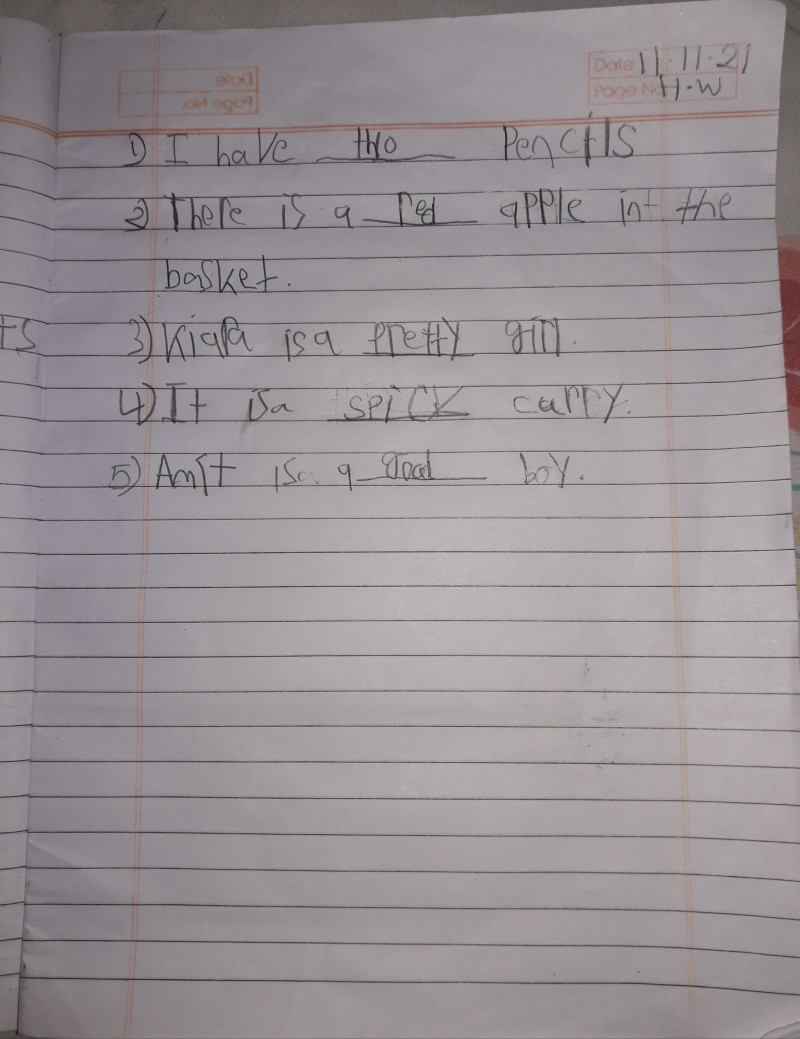 Date 11.11.21
Page No H.W
1) I have two Pencils
2) There is a red apple int the
basket.
ts
3) Kiara is a pretty girl.
4) It is a spick carry.
5) Amit is a a Good boy.